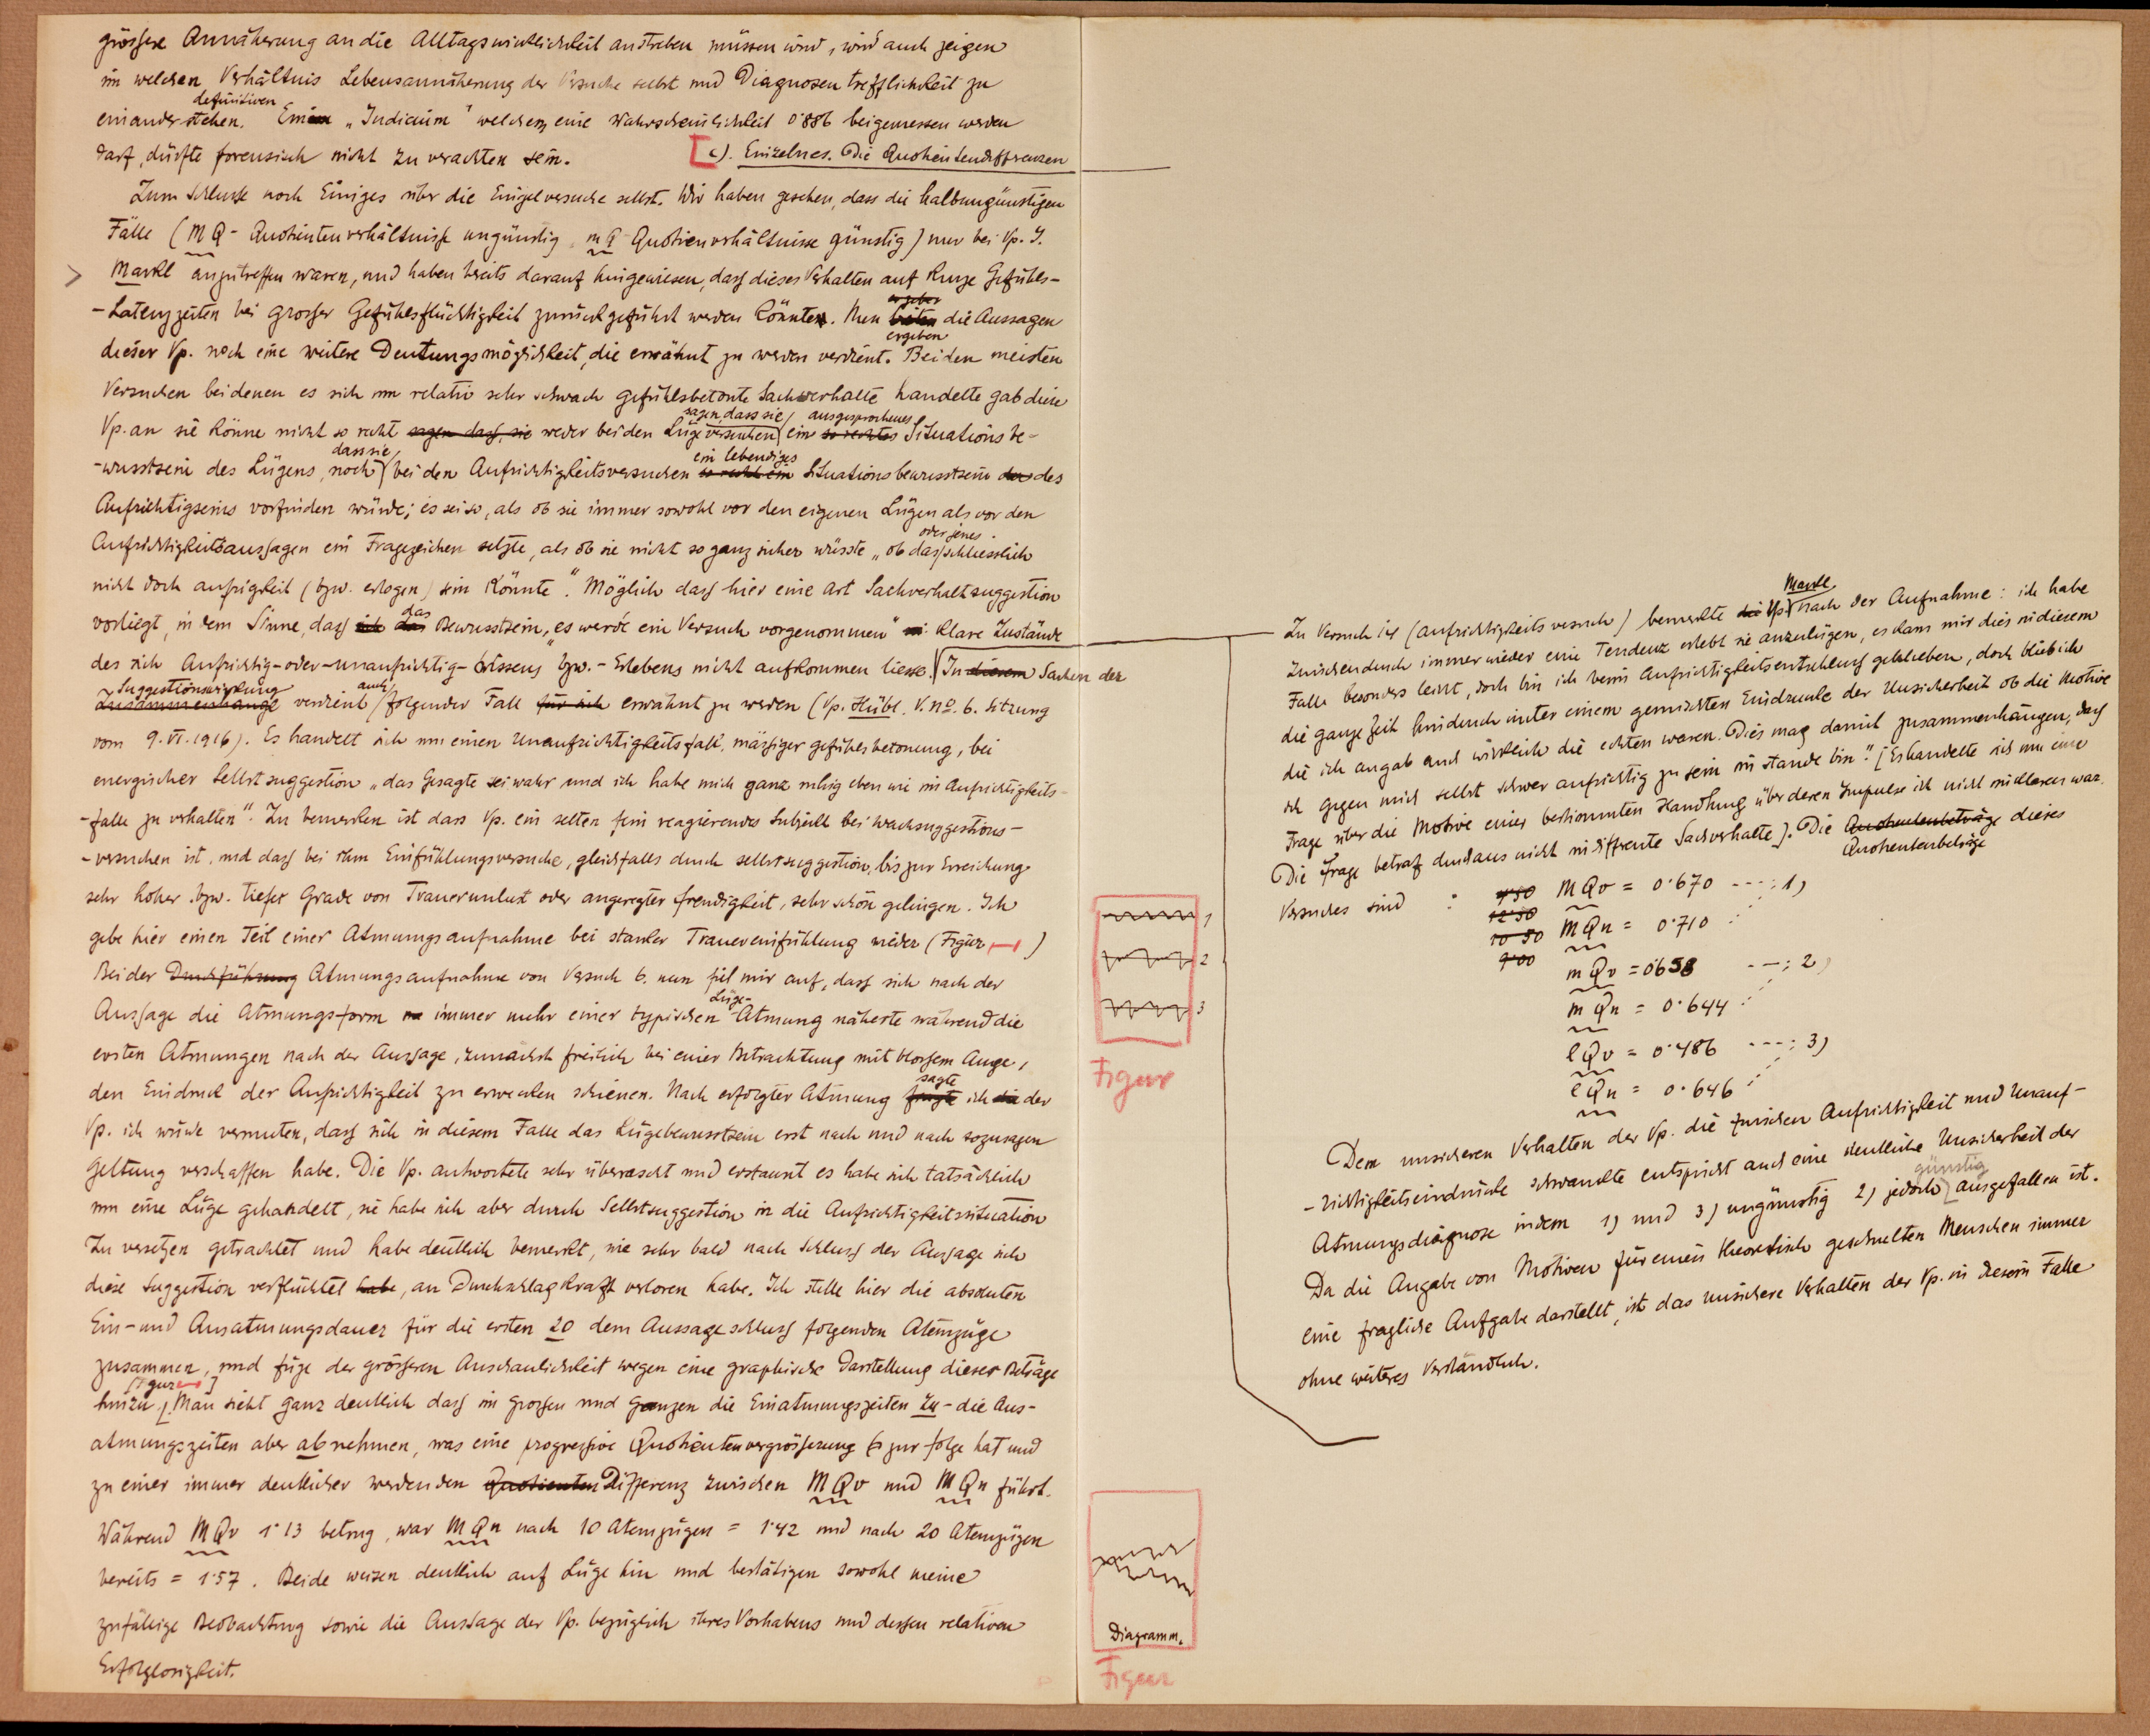 grössere Annäherung an die Alltagswirklichkeit anstreben müssen wird, wird auch zeigen
in welchen Verhältnis Lebensannäherung der Versuche selbst und Diagnosentrefflichkeit zu
definitiven
einander stehen. Einem „Indicium" welchem eine Wahrscheinlichkeit 0·886 beigemessen werden
darf, dürfte forensisch nicht zu verachten sein.
c). Einzelnes. Die Quotientendifferenzen
Zum Schlusse noch Einiges über die Einzelversuche selbst. Wir haben gesehen, dass die halbungünstigen
Fälle (MQ - Quotientenverhältnisse ungünstig, mQ Quotienverhältnisse günstig) nur bei Vp. J.
Markl anzutreffen waren, und haben breits darauf hingewiesen, dass dieses Verhalten auf kurze Gefühls-
-Latenzzeiten bei grosser Gefühlsflüchtigkeit zurückgeführt werden könnte. Nun die Aussagen
ergeben
dieser Vp. noch eine weitere Deutungsmöglichkeit, die erwähnt zu werden verdient. Bei den meisten
Versuchen bei denen es sich um relativ sehr schwach gefühlsbetonte Sachverhalte handelte gab diese
sagen, dass sie ausgesprochenes
Vp. an sie könne nicht so recht sagen dass sie weder bei den Lügeversuchen ein so rechtes Situationsbe-
dass sie ein lebendiges
-wusstsein des Lügens, noch bei den Aufrichtigkeitsversuchen so recht ein Situationsbewusstsein des
Aufrichtigseins vorfinden würde; es sei so, als ob sie immer sowohl vor den eigenen Lügen als vor den
oder jenes
Aufrichtigkeitsaussagen ein Fragezeichen setzte, als ob sie nicht so ganz sicher wüsste „ob das schliesslich
nicht doch aufrigkeit (bzw. erlogen) sein könnte". Möglich dass hier eine Art Sachverhaltsuggestion
das
vorliegt, in dem Sinne, dass Bewusstsein, „es werde ein Versuch vorgenommen" klare Zustände
des sich Aufrichtig-oder-unaufrichtig-Wissens" bzw.-Erlebens nicht aufkommen liesse. In diesem Sachen der
Suggestionswirkung auch
Zusammenhange verdient folgender Fall für sich erwähnt zu werden (Vp. Hübl. V. no. 6. Sitzung
vom 9. VI. 1916). Es handelt sich um einen Unaufrichtigkeitsfall, mässiger gefühlsbetonung, bei
energischer Selbstsuggestion „das Gesagte sei wahr und ich habe mich ganz ruhig eben wie im Aufrichtigkeits-
-falle zu verhalten". Zu bemerken ist dass Vp. ein selten fein reagierendes Subjekt bei Wachsuggestions-
-versuchen ist, und dass bei ihm Einfühlungsversuche, gleichfalls durch selbstsuggestion, bis zur Erreichung
sehr hoher bzw. tiefer Grade von Trauerunlust oder angeregter freudigkeit, sehr schön gelingen. Ich
gebe hier einen Teil einer Atmungsaufnahme bei starker Trauereinfühlung wieder (Figur )
Bei der Durchführung Atmungsaufnahme von Versuch 6. nun fiel mir auf, dass sich nach der
Lüge-
Aussage die Atmungsform immer mehr einer typischen Atmung näherte während die
ersten Atmungen nach der Aussage, zunächst freilich bei einer Betrachtung mit blossem Auge,
den Eindruck der Aufrichtigkeit zu erwecken schienen. Nach erfolgter Atmung fragte ich der
sagte
Vp. ich würde vermuten, dass sich in diesem Falle das Lügebewusstsein erst nach und nach sozusagen
Geltung verschaffen habe. Die Vp. antwortete sehr überrascht und erstaunt es habe sich tatsächlich
um eine Lüge gehandelt, sie habe sich aber durch Selbstsuggestion in die Aufrichtigkeitssituation
zu versetzen getrachtet und habe deutlich bemerkt, wie sehr bald nach Schluss der Aussage sich
diese Suggestion verflüchtet habe, an Durchschlagskraft verloren habe. Ich stelle hier die absoluten
Ein- und Ausatmungsdauer für die ersten 20 dem Aussageschluss folgenden Atemzüge
zusammen, und füge der grösseren Anschaulichkeit wegen eine graphische Darstellung dieser Beträge
[Figur ]
hinzu. Man sieht ganz deutlich dass im grossen und ganzen die Einatmungszeiten zu - die Aus-
atmungszeiten aber abnehmen, was eine progressive Quotientenvergrösserung zur folge hat und
zu einer immer deutlicher werdenden Quotienten Differenz zwischen MQv und MQn führt.
Während MQv 1·13 betrug, war MQn nach 10 Atemzügen = 1·42 und nach 20 Atemzügen
bereits = 1·57. Beide weisen deutlich auf Lüge hin und bestätigen sowohl meine
zufällige Beobachtung sowie die Aussage der Vp. bezüglich ihres Vorhabens und dessen relativen
Erfolglosigkeit.
1
2
3
Figur
Diagramm.
Figur
Markl.
Zu Versuch 14 (Aufrichtigkeitsversuch) bemerkte die Vp. nach der Aufnahme: ich habe
Zwischendurch immer wieder eine Tendenz erlebt sie anzulügen, es kam mir dies in diesem
Falle besonders leicht, doch bin ich beim Aufrichtigkeitsentschluss geblieben, doch blieb ich
die ganze Zeit hindurch unter einem gemischten Eindrucke der Unsicherheit ob die Motive
die ich angab auch wirklich die echten waren. Dies mag damit zusammenhängen, dass
ich gegen mich selbst schwer aufrichtig zu sein im stande bin". [Es handelte sich um eine
Frage über die Motive einer bestimmten Handlung über deren Impulse ich nicht im klaren war.
Die Frage betraf durchaus nicht indifferente Sachverhalte). Die Quotientenbeträge dieses
Quotientenbeträge
Versuches sind :
12·50
10·50
9·00
MQv = 0·670 ---: 1)
MQn = 0·710
mQv = 0·658 ---: 2)
mQn = 0·644
lQv = 0·486 ---: 3)
lQn = 0·646
Dem unsicheren Verhalten der Vp. die zwischen Aufrichtigkeit und Unauf-
-richtigkeitseindrücke schwankte entspricht auch eine deutliche Unsicherheit der
günstig
Atmungsdiagnose indem 1) und 3) ungünstig 2) jedoch ausgefallen ist.
Da die Angabe von Motiven für einen theoretisch geschulten Menschen immer
eine fragliche Aufgabe darstellt, ist das unsichere Verhalten der Vp. in diesem Falle
ohne weiteres verständlich.